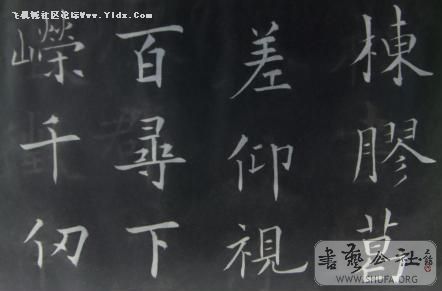 棟膠葛
差仰視
百尋下
嶸千仞
社区论坛Www.Yldx.com
書藝公社
WWW.SHUFA.ORG